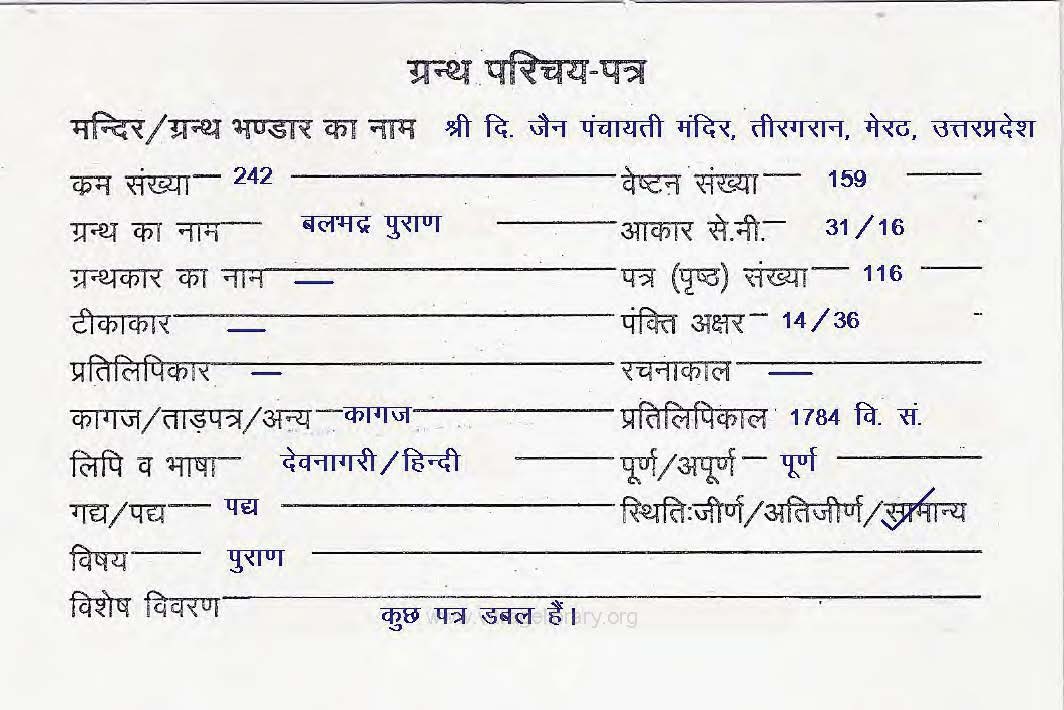 ग्रन्थ परिचय-पत्र
मन्दिर/ग्रन्थ भण्डार का नाम श्री दि. जैन पंचायती मंदिर, तीरगरान, मेरठ, उत्तरप्रदेश
क्रम संख्या 242 वेष्टन संख्या 159
ग्रन्थ का नाम बलभद्र पुराण आकार से.मी. 31/16
ग्रन्थकार का नाम — पत्र (पृष्ठ) संख्या 116
टीकाकार — पंक्ति अक्षर 14/36
प्रतिलिपिकार — रचनाकाल —
कागज/ताड़पत्र/अन्य कागज प्रतिलिपिकाल 1784 वि. सं.
लिपि व भाषा देवनागरी/हिन्दी पूर्ण/अपूर्ण पूर्ण
गद्य/पद्य पद्य स्थिति:जीर्ण/अतिजीर्ण/सामान्य
विषय पुराण
विशेष विवरण कुछ पत्र डबल हैं।